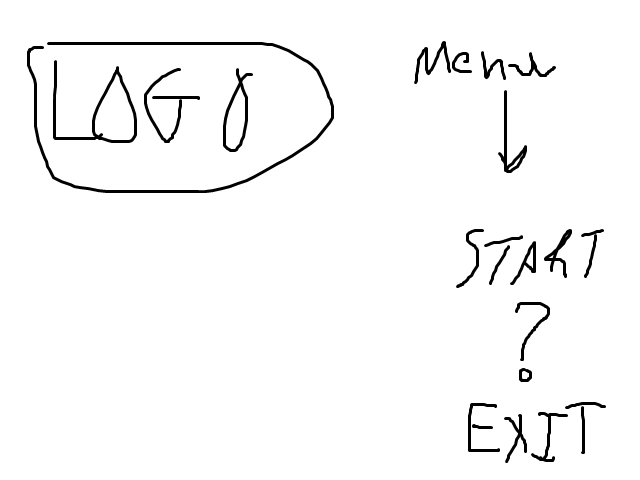 LOGO
Menu
START
?
EXIT